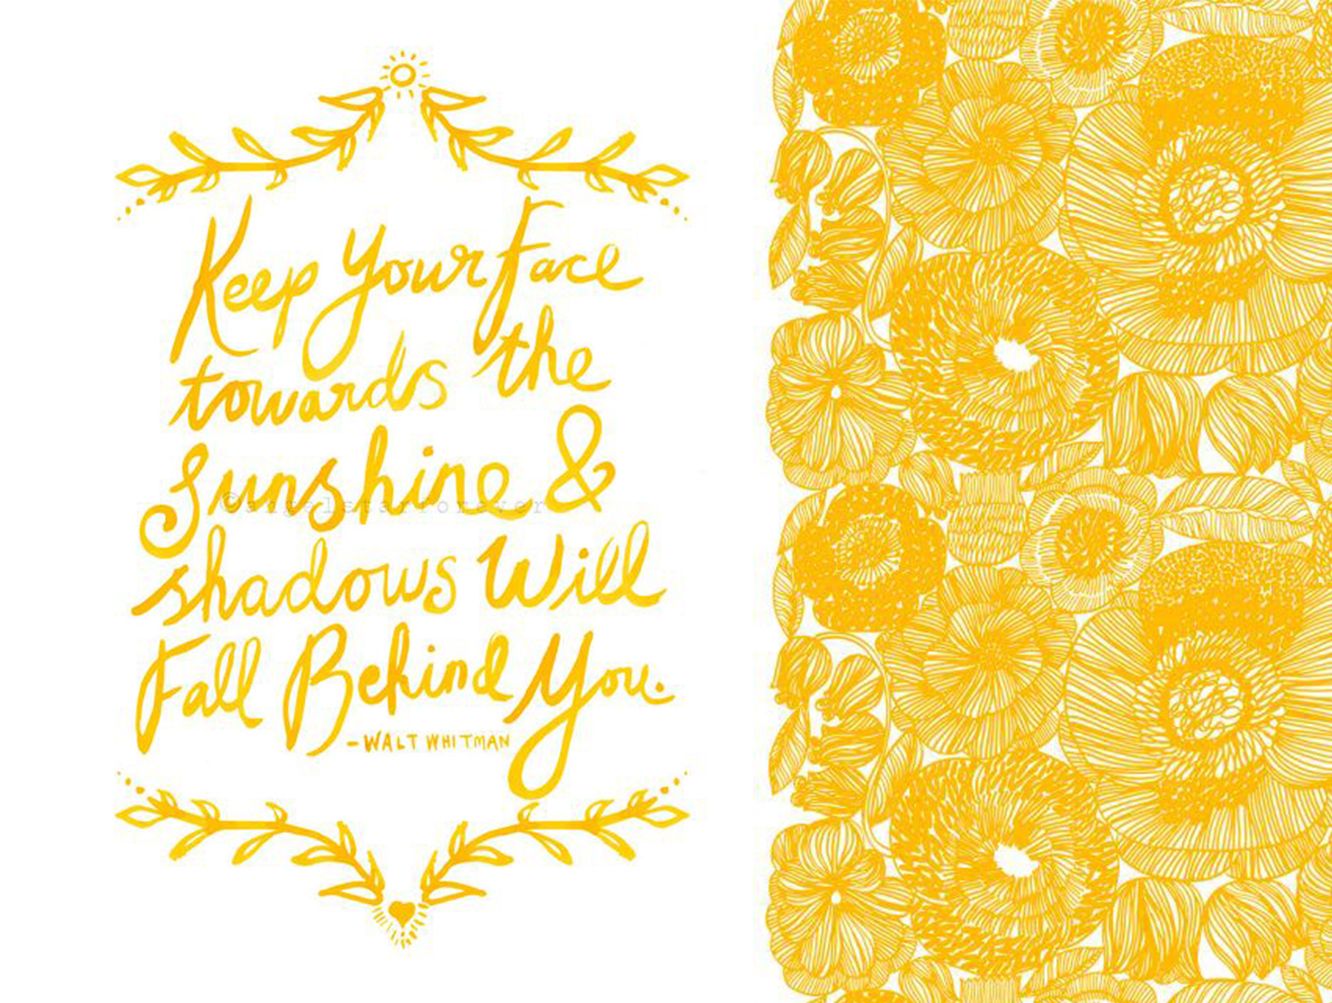 Keep Your Face
towards the
Sunshine &
shadows Will
Fall Behind You.
-WALT WHITMAN
©angelstarforever